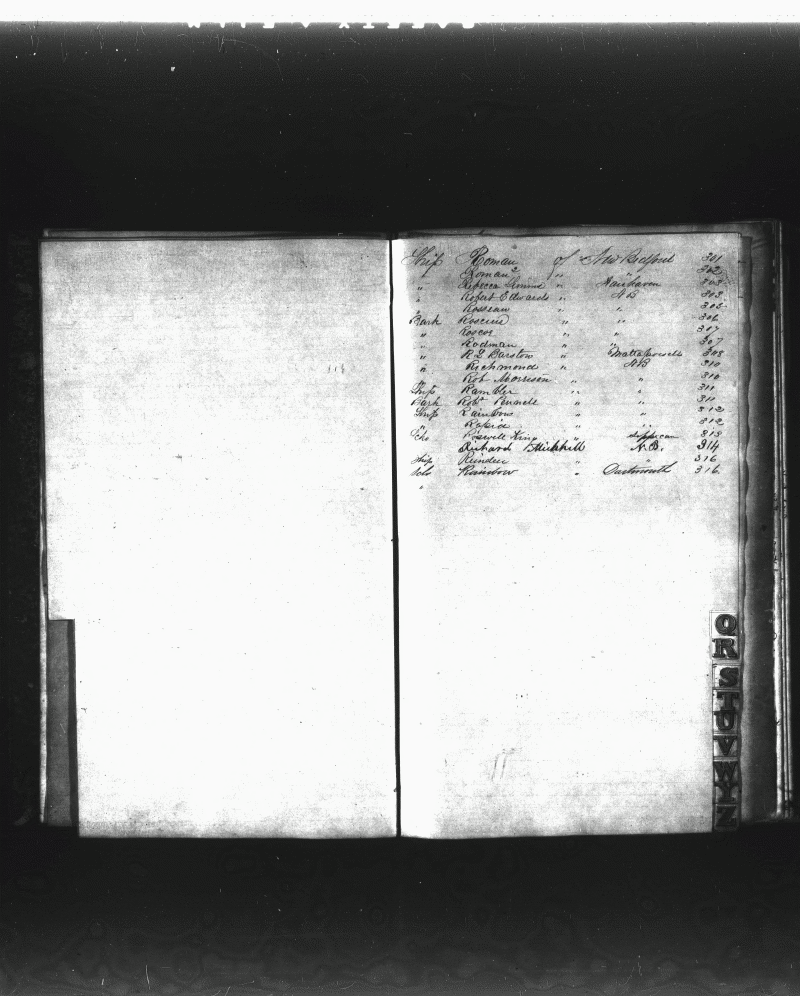 Ship Roman of New Bedford 301
" Roman 2d " " 302
" Rebecca Simms " Fairhaven 303
" Robert Edwards " N B 303
" Rosseau " " 305
Bark Roscius " " 306
" Roscoe " " 307
" Rodman " " 307
" R L Barstow " Mattapoisett 308
" Richmond " N B 310
Robt Morrison " " 310
Ship Rambler " " 311
Bark Robt Pennell " " 311
Ship Rainbow " " 312
" Rapid " " 312
Scho Roswell King " Sippican 313
Richard Mitchell N. B. 314
Ship Reindeer " " 316
Scho Rainbow " Dartmouth 316
"
Q
R
S
T
U
V
W
Y
Z